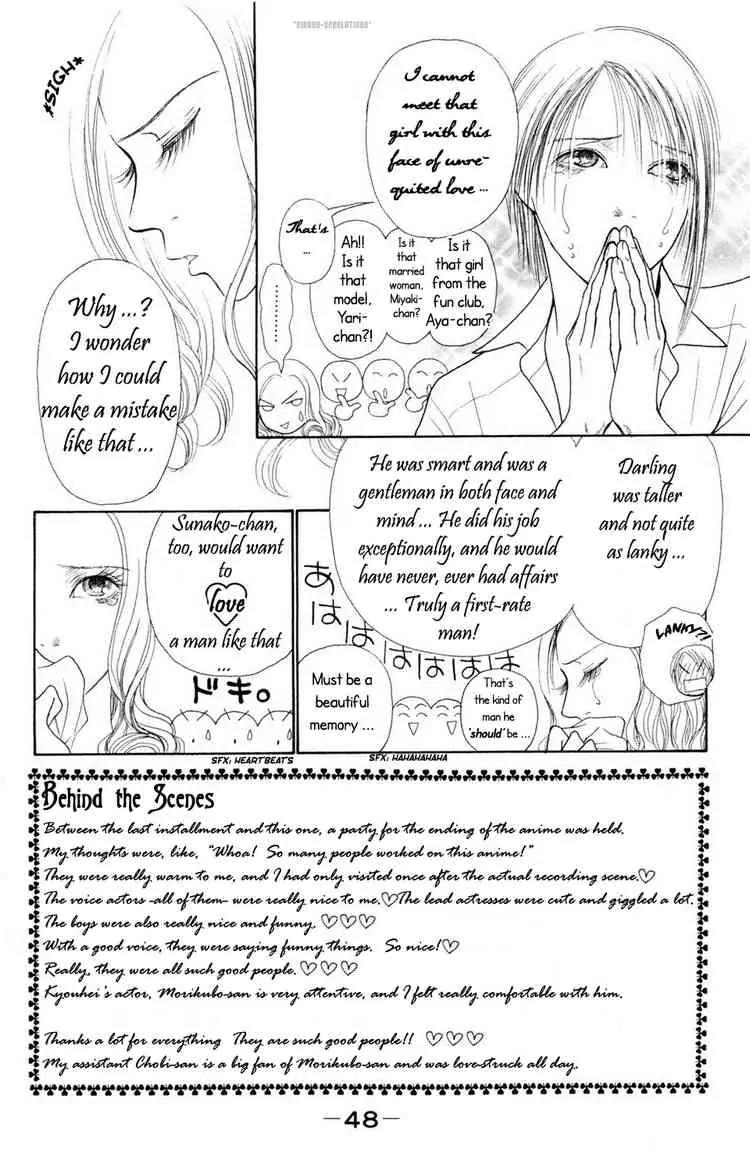 "KIBOUU-SANALATIONS"
I cannot
meet that
girl with this
face of unre-
quited love ...
*SIGH*
That's
...
Ah!!
Is it
that
model,
Yari-
chan?!
Is it
that
married
woman,
Miyaki-
chan?
Is it
that girl
from the
fun club,
Aya-chan?
........
Why ...?
I wonder
how I could
make a mistake
like that ...
Darling
was taller
and not quite
as lanky ...
He was smart and was a
gentleman in both face and
mind ... He did his job
exceptionally, and he would
have never, ever had affairs
... Truly a first-rate
man!
LANKY?!
あははははははは
That's
the kind of
man he
'should' be ...
Must be a
beautiful
memory ...
SFX: HAHAHAHAHA
Sunako-chan,
too, would want
to
love
a man like that
...
ドキ。
SFX: HEARTBEATS
Behind the Scenes
Between the last installment and this one, a party for the ending of the anime was held.
My thoughts were, like, "Whoa! So many people worked on this anime!"
They were really warm to me, and I had only visited once after the actual recording scene.♡
The voice actors -all of them- were really nice to me.♡The lead actresses were cute and giggled a lot.
The boys were also really nice and funny. ♡♡♡
With a good voice, they were saying funny things. So nice!♡
Really, they were all such good people.♡♡♡
Kyouhei's actor, Morikubo-san is very attentive, and I felt really comfortable with him.
Thanks a lot for everything They are such good people!! ♡♡♡
My assistant Chobi-san is a big fan of Morikubo-san and was love-struck all day.
—48—